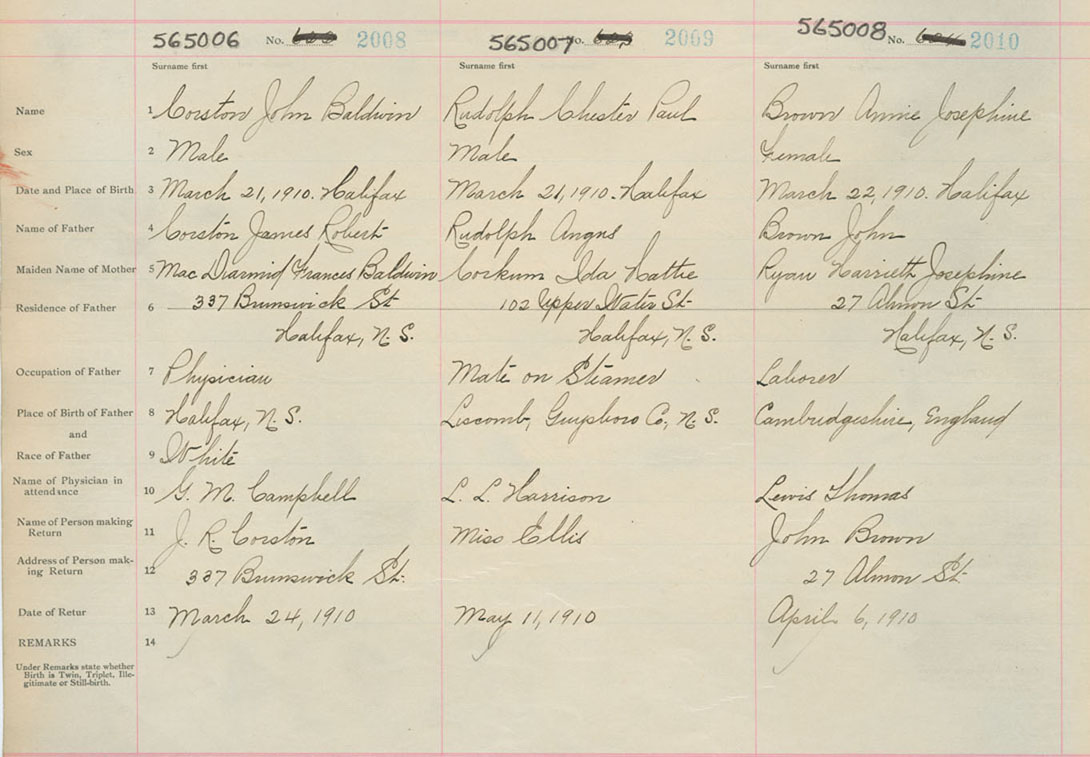 565006 No. 2008 565007 No. 2009 565008 No. 2010
Surname first Surname first Surname first
Name 1 Corston John Baldwin Rudolph Chester Paul Brown Annie Josephine
Sex 2 Male Male Female
Date and Place of Birth 3 March 21, 1910. Halifax March 21, 1910. Halifax March 22, 1910. Halifax
Name of Father 4 Corston James Robert Rudolph Angus Brown John
Maiden Name of Mother 5 Mac Diarmid Frances Baldwin Corkum Ida Hattie Ryan Harrieth Josephine
Residence of Father 6 337 Brunswick St 102 Upper Water St. 27 Almon St.
Halifax, N.S. Halifax, N.S. Halifax, N.S.
Occupation of Father 7 Physician Mate on Steamer Laborer
Place of Birth of Father 8 Halifax, N.S. Liscomb, Guysboro Co., N.S. Cambridgeshire, England
and
Race of Father 9 White
Name of Physician in
attendance 10 G. M. Campbell L. L. Harrison Lewis Thomas
Name of Person making
Return 11 J. R. Corston Miss Ellis John Brown
Address of Person mak-
ing Return 12 337 Brunswick St. 27 Almon St.
Date of Retur 13 March 24, 1910 May 11, 1910 April 6, 1910
REMARKS 14
Under Remarks state whether
Birth is Twin, Triplet, Ille-
gitimate or Still-birth.